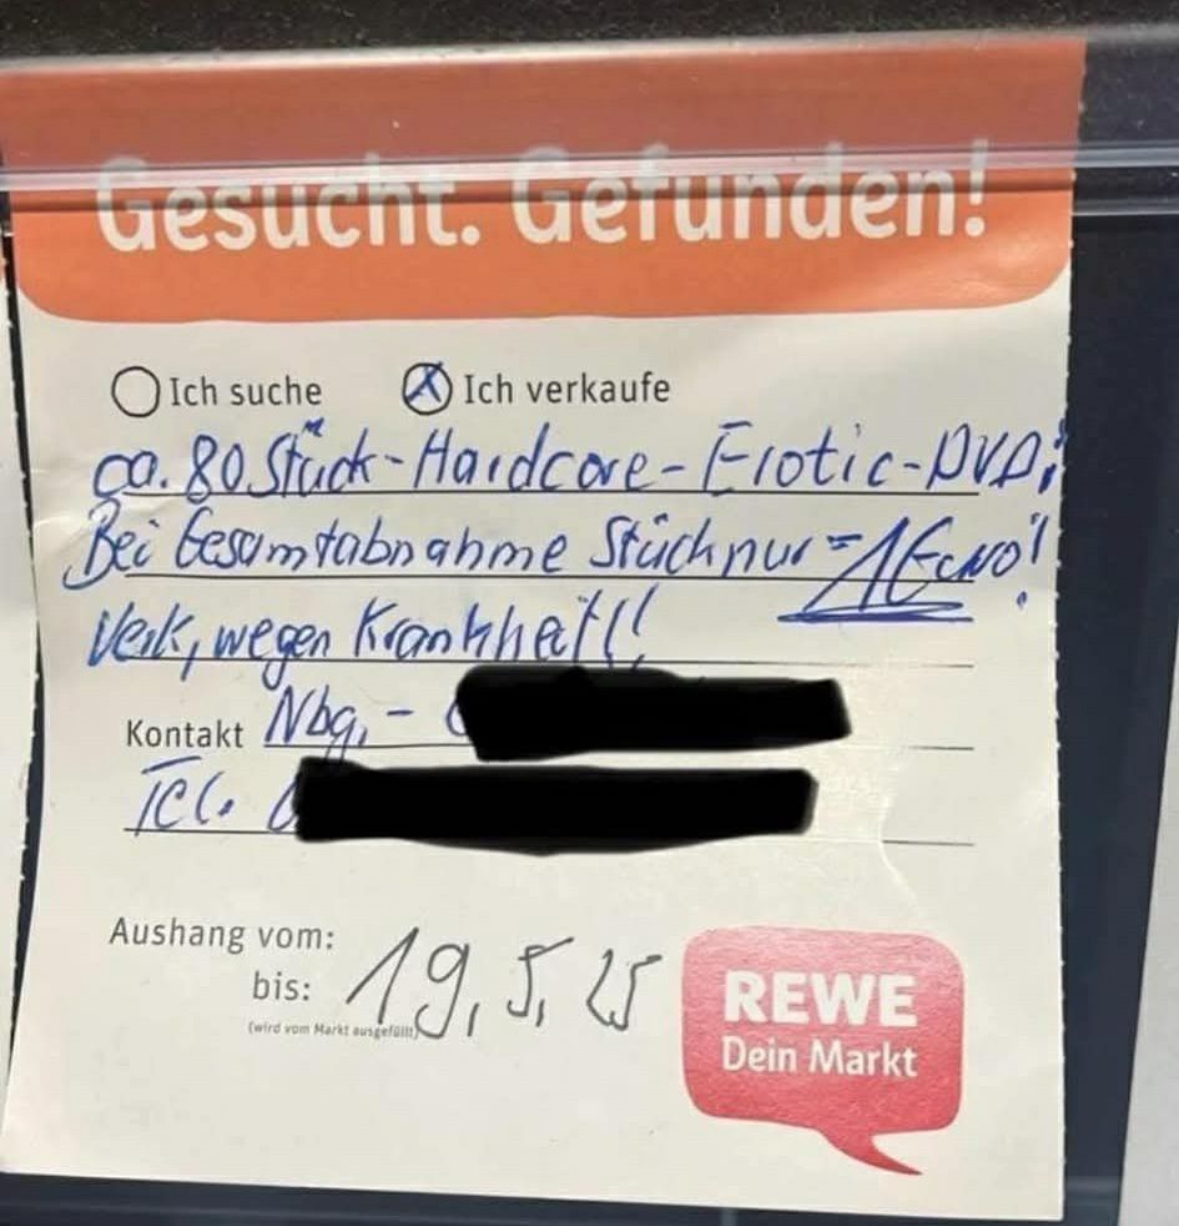 Gesucht. Gefunden!
Ich suche Ich verkaufe
ca. 80 Stück-Hardcore-Erotic-DVD;
Bei Gesamtabnahme Stück nur = 1 Euro!
Verk, wegen Krankheit!!
Kontakt Nbg, -
Tel.
Aushang vom:
bis: 19, 5, 25
(wird vom Markt ausgefüllt)
REWE
Dein Markt